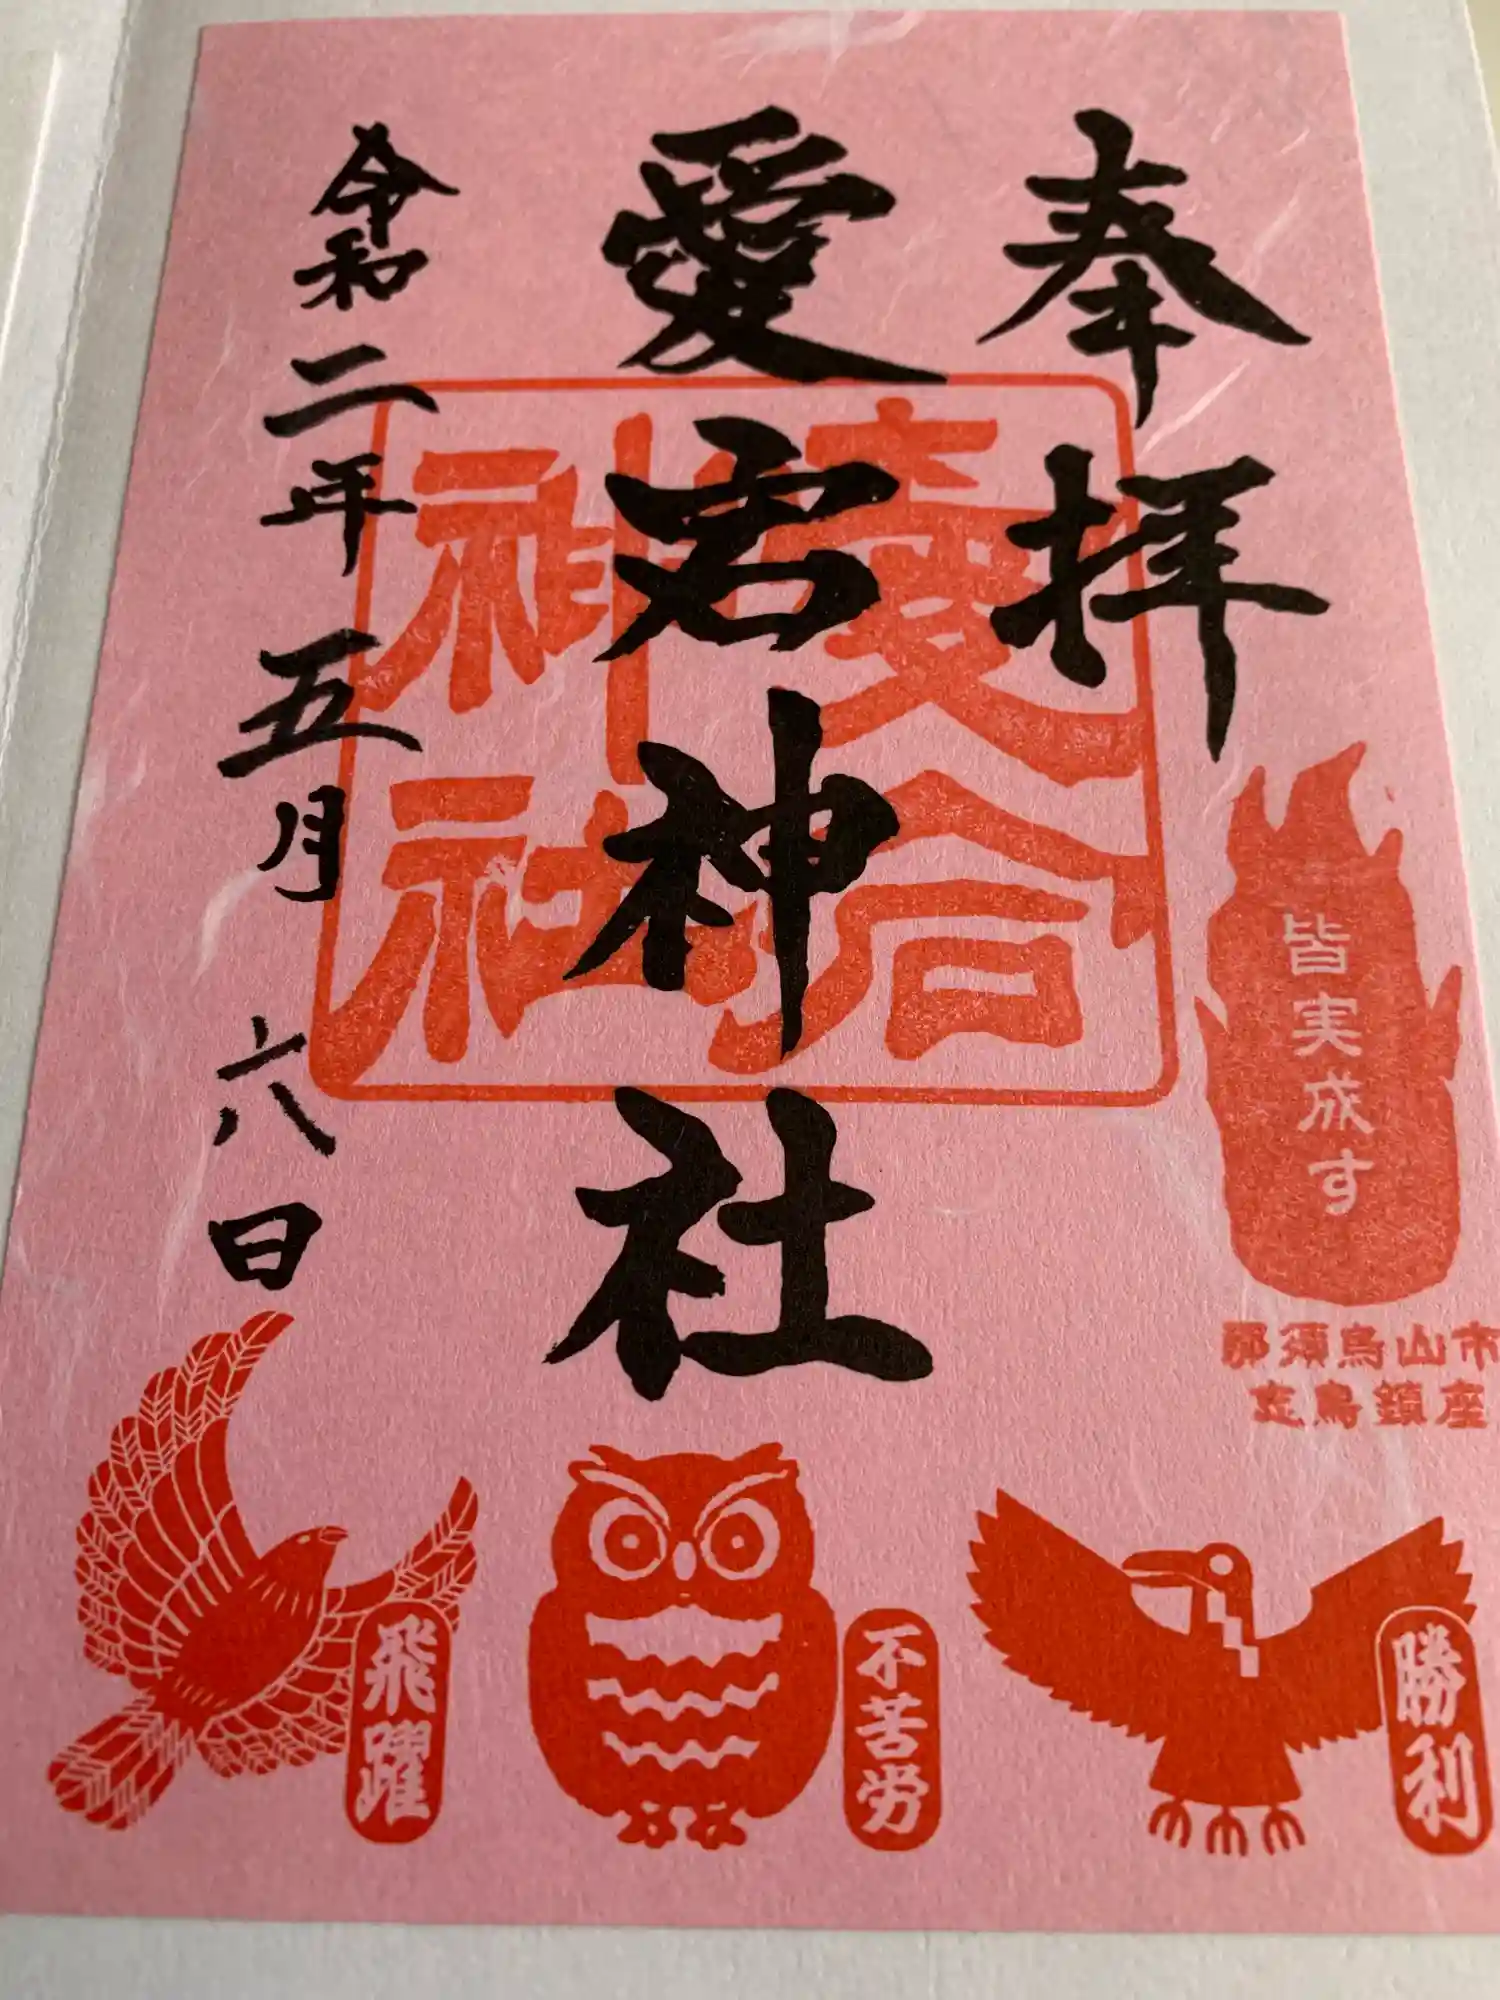 奉拝
愛宕神社
令和二年 五月 六日
愛宕
神社
皆実成す
那須烏山市
志鳥鎮座
飛躍
不苦労
勝利